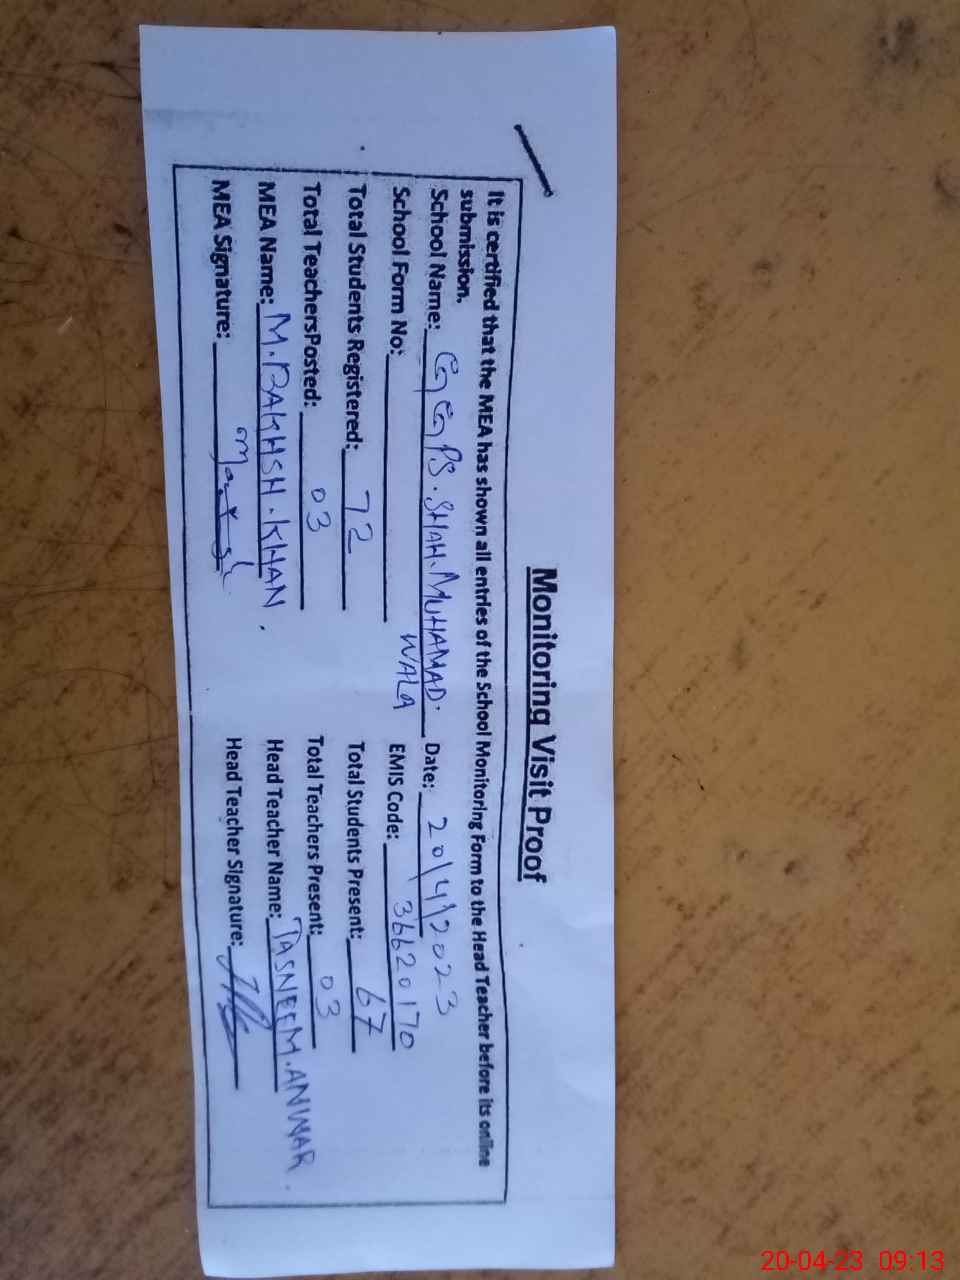 Monitoring Visit Proof
It is certified that the MEA has shown all entries of the School Monitoring Form to the Head Teacher before its online
submission.
School Name: GGPS. SHAH. MUHAMAD. WALA Date: 20/4/2023
School Form No: EMIS Code: 36620170
Total Students Registered: 72 Total Students Present: 67
Total TeachersPosted: 03 Total Teachers Present: 03
MEA Name: M. BAKHSH. KHAN. Head Teacher Name: TASNEEM. ANWAR.
MEA Signature: Head Teacher Signature:
20-04-23 09:13